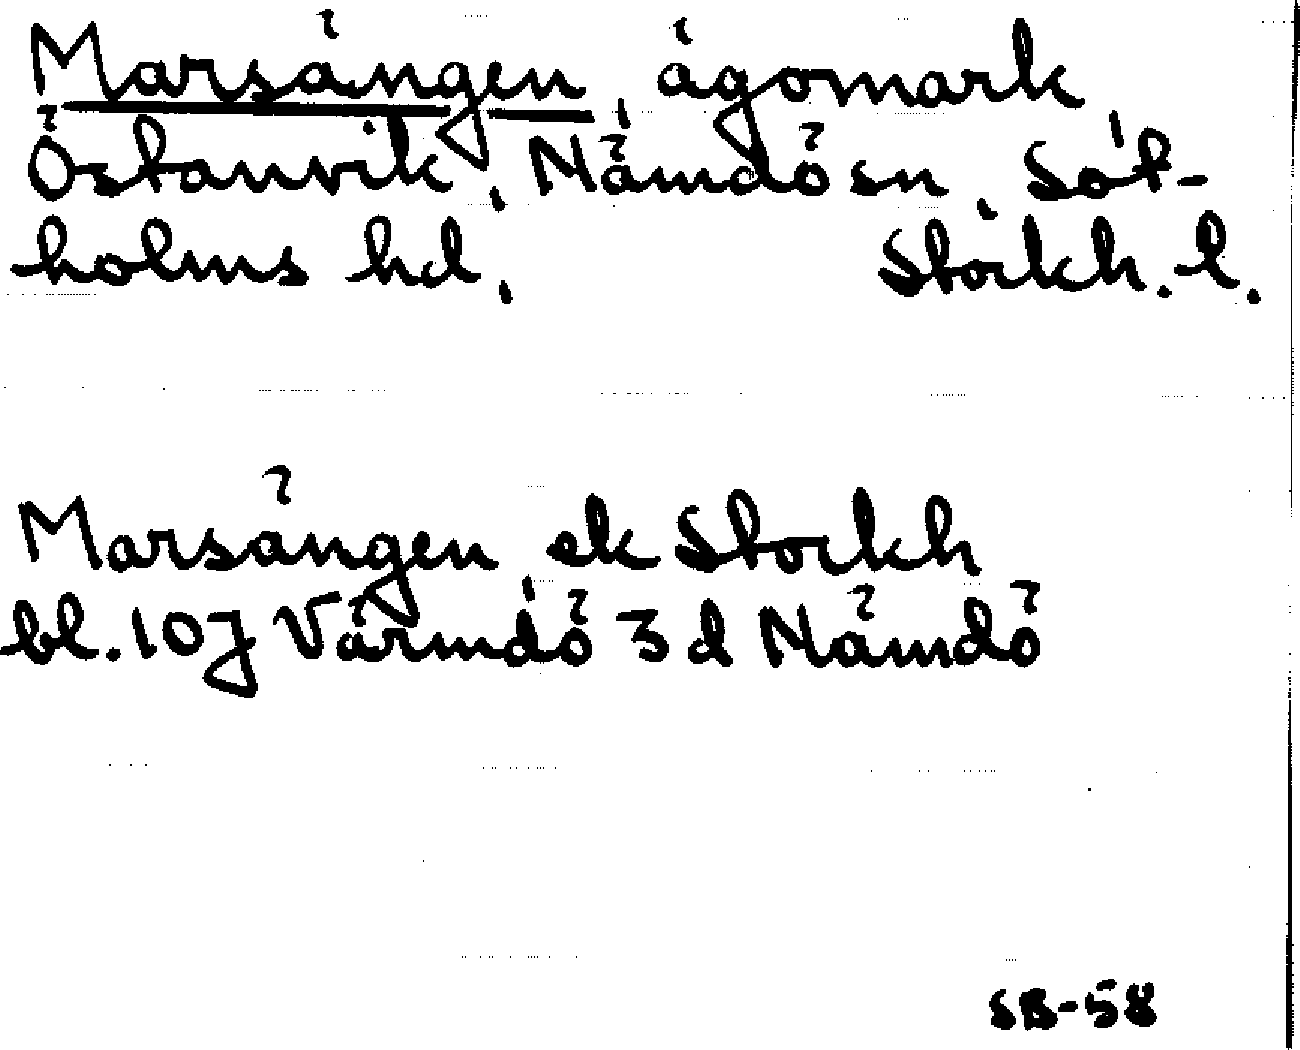 Marsängen, ägomark,
Östanvik, Nämdö sn, Sot-
holms hd, Stockh. l.
Marsängen ek Stockh
bl. 10J Värmdö 3 d Nämdö
SB-58